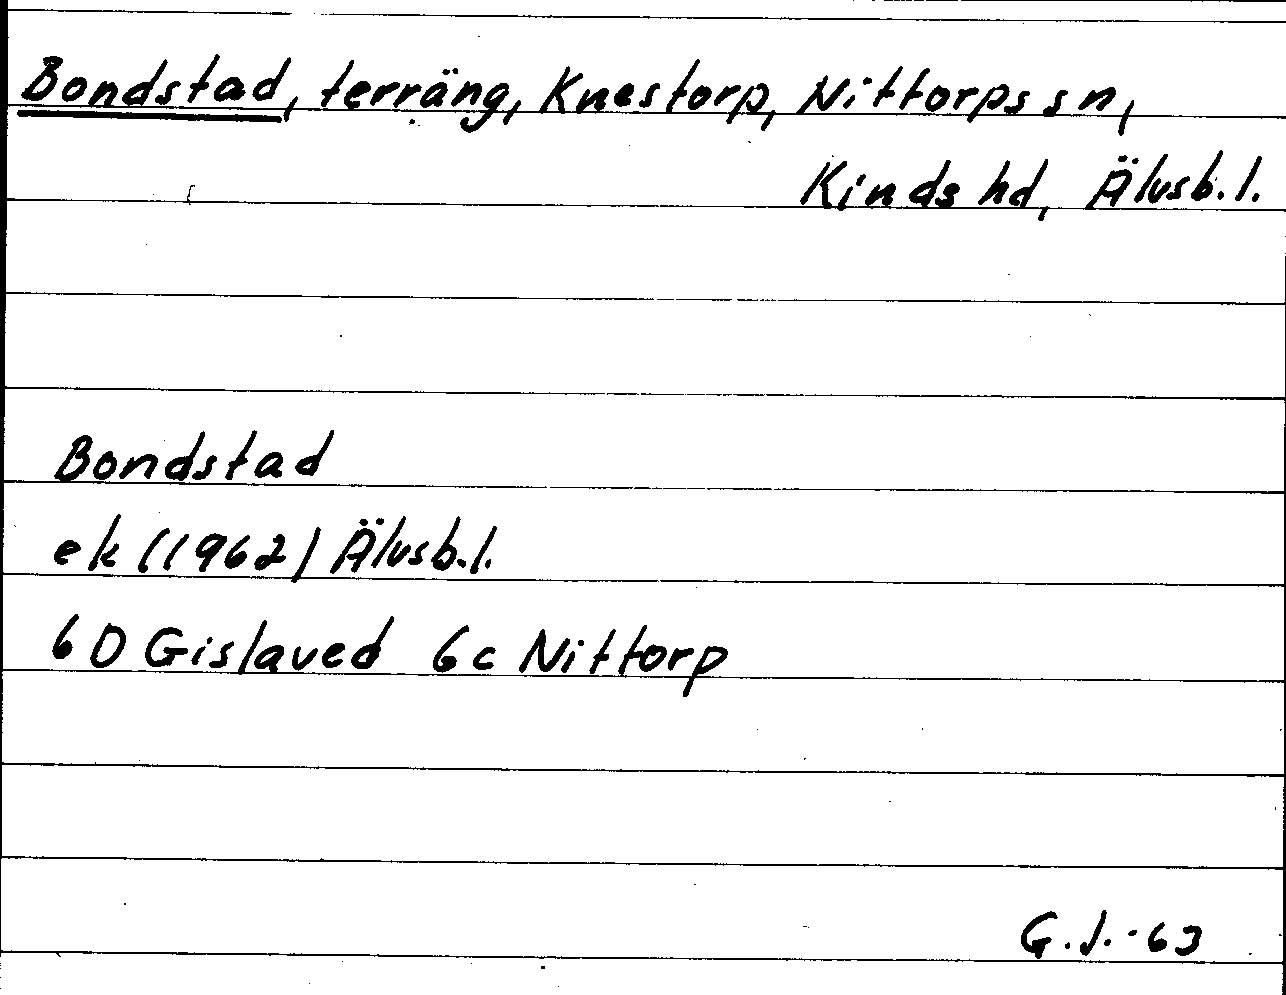 Bondstad, terräng, Knestorp, Nittorps sn,
Kinds hd, Älvsb.l.
Bondstad
ek (1962) Älvsb.l.
6D Gislaved 6c Nittorp
G.J.-63